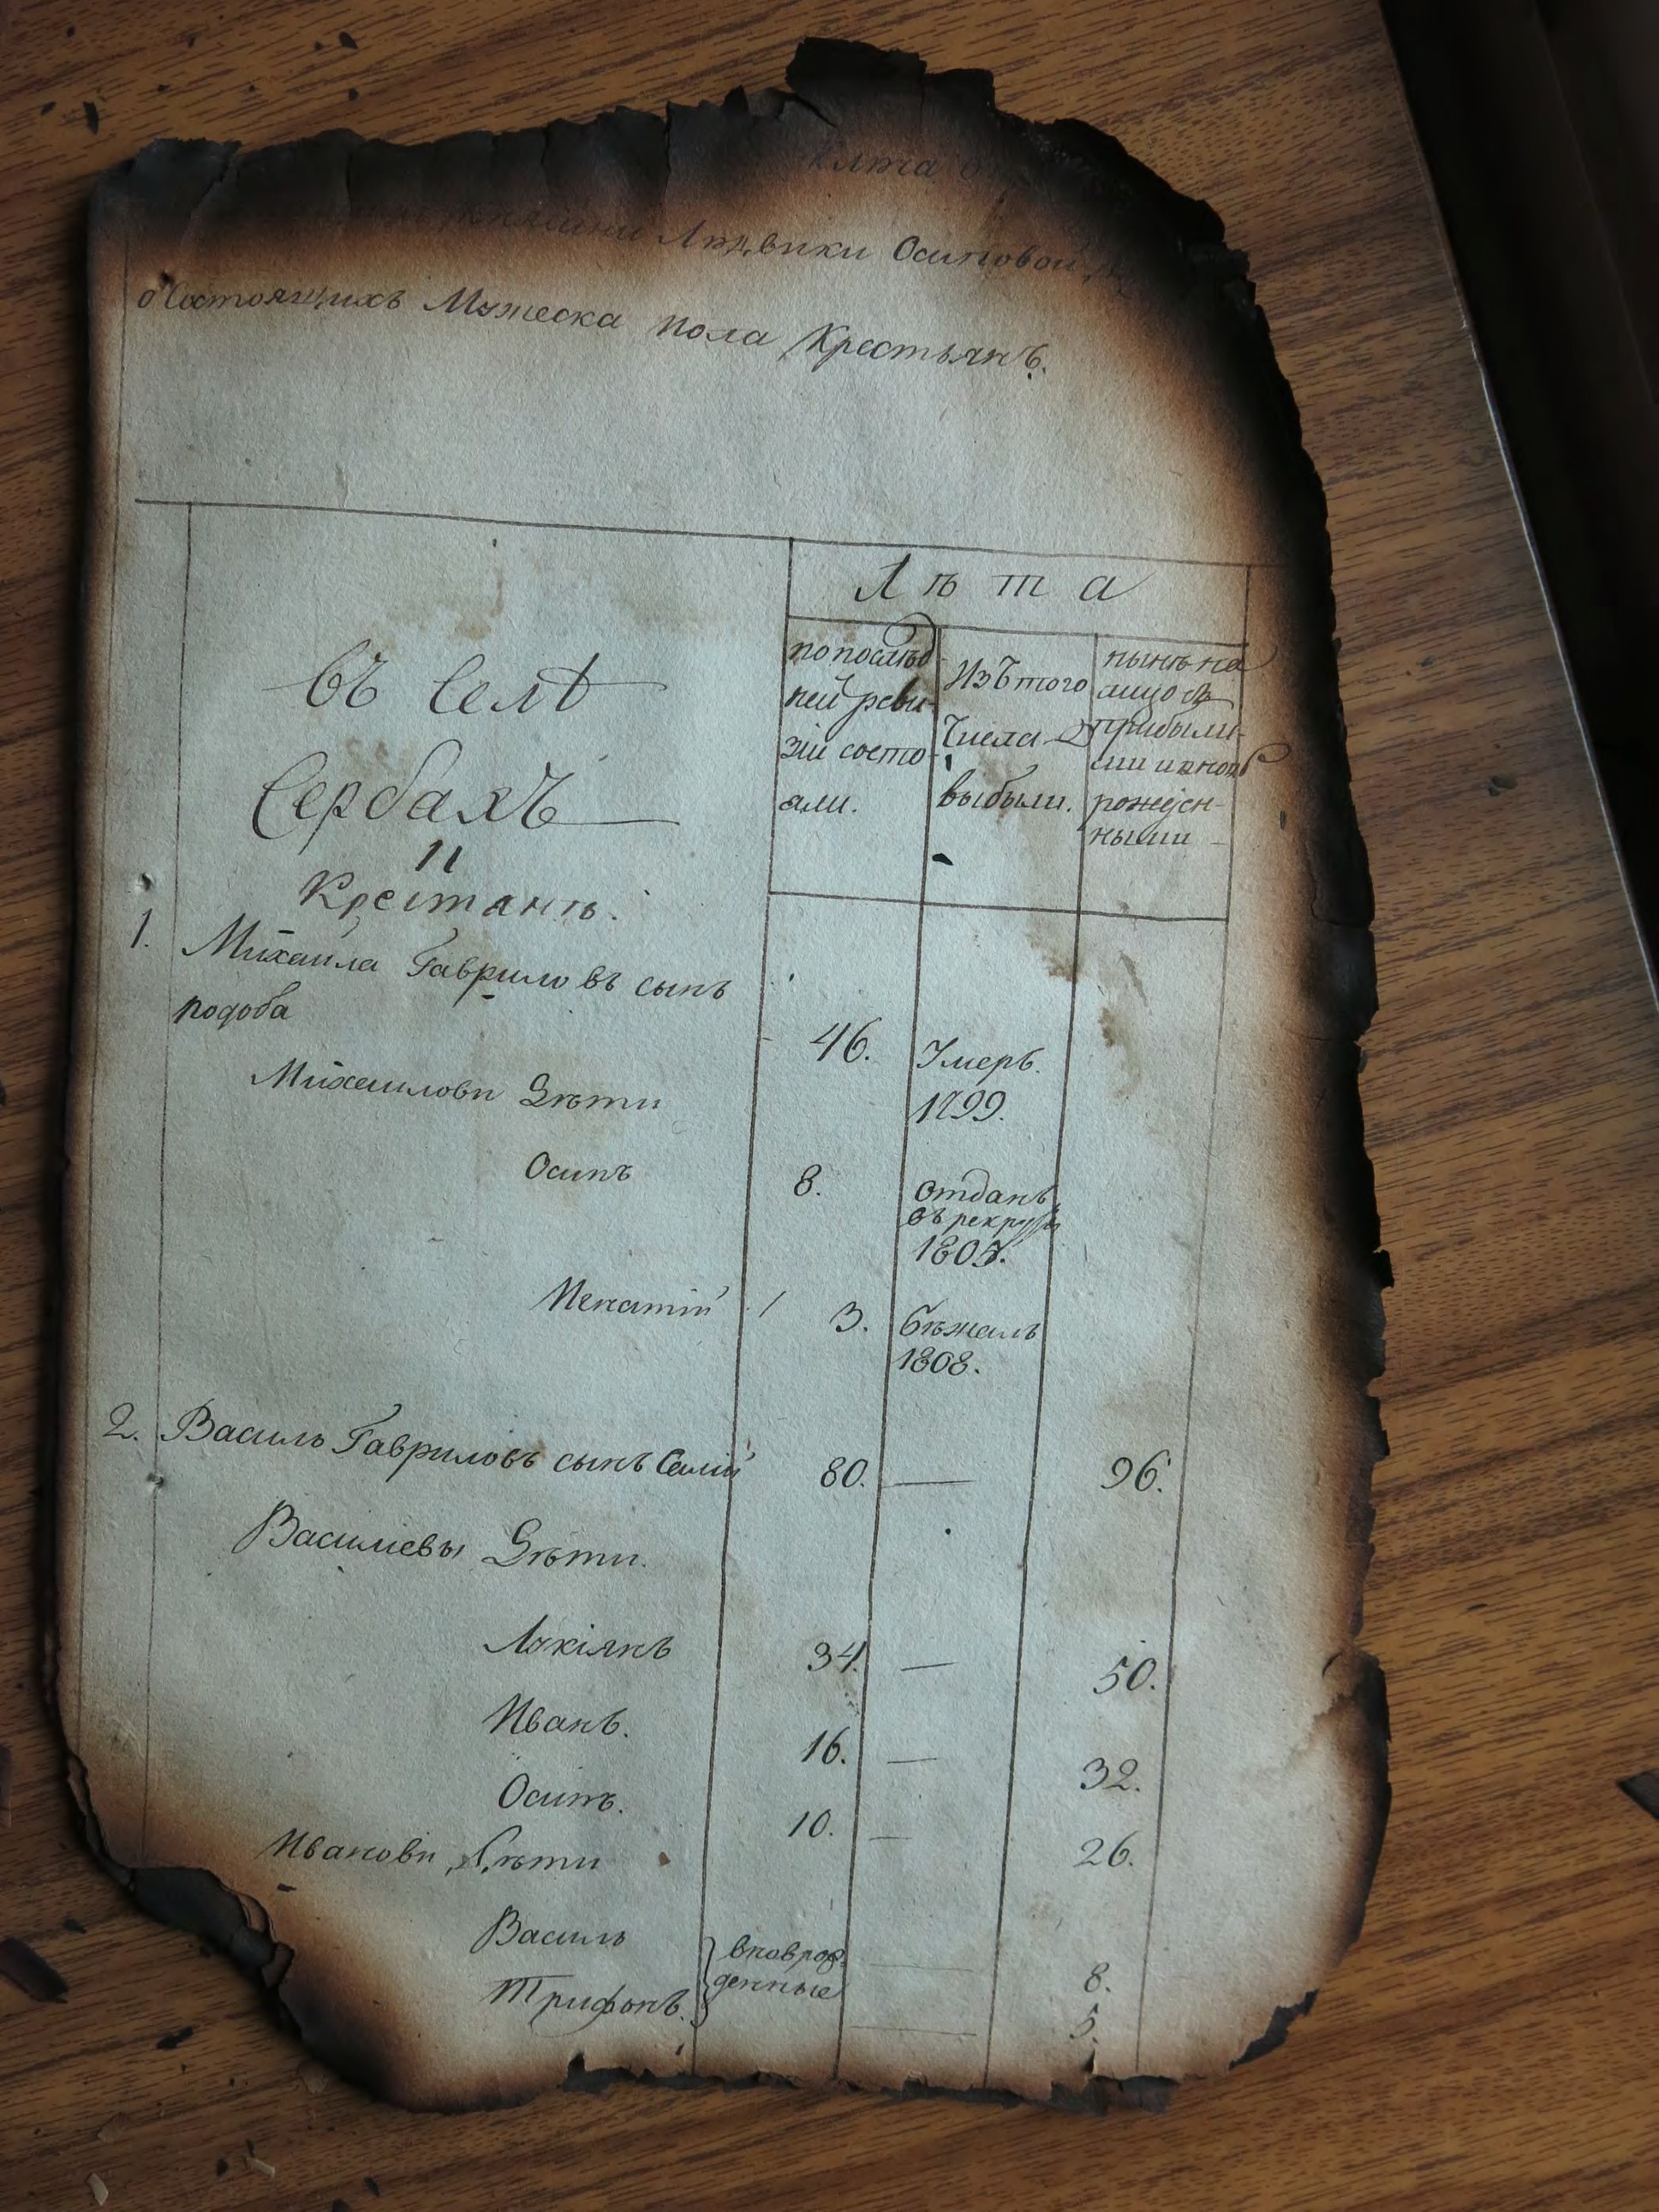 Людвики Осиповой
о Состоящихъ Мужеска пола Крестьянъ.
Лѣта
въ Селѣ
Сербахъ
Крестянъ.
по послѣд
ней реви-
зіи состо-
яли.
Изъ того
Числа
выбыли.
нынѣ на
лицо съ
прибыли-
ми и вновь
рожден-
ными
1. Михаила Гавриловъ сынъ
подоба
46.
Умеръ.
1799.
Михаиловы Дѣти
Осипъ
8.
отданъ
въ рекруты
1805.
Игнатій
3.
бѣжалъ
1808.
2. Василь Гавриловъ сынъ
80.
96.
Василіевы Дѣти.
Лукіянъ
34.
50.
Иванъ.
16.
32.
Осипъ.
10.
26.
Ивановы Дѣти
Василь
вноврож
8.
Трифонъ.
денные
5.